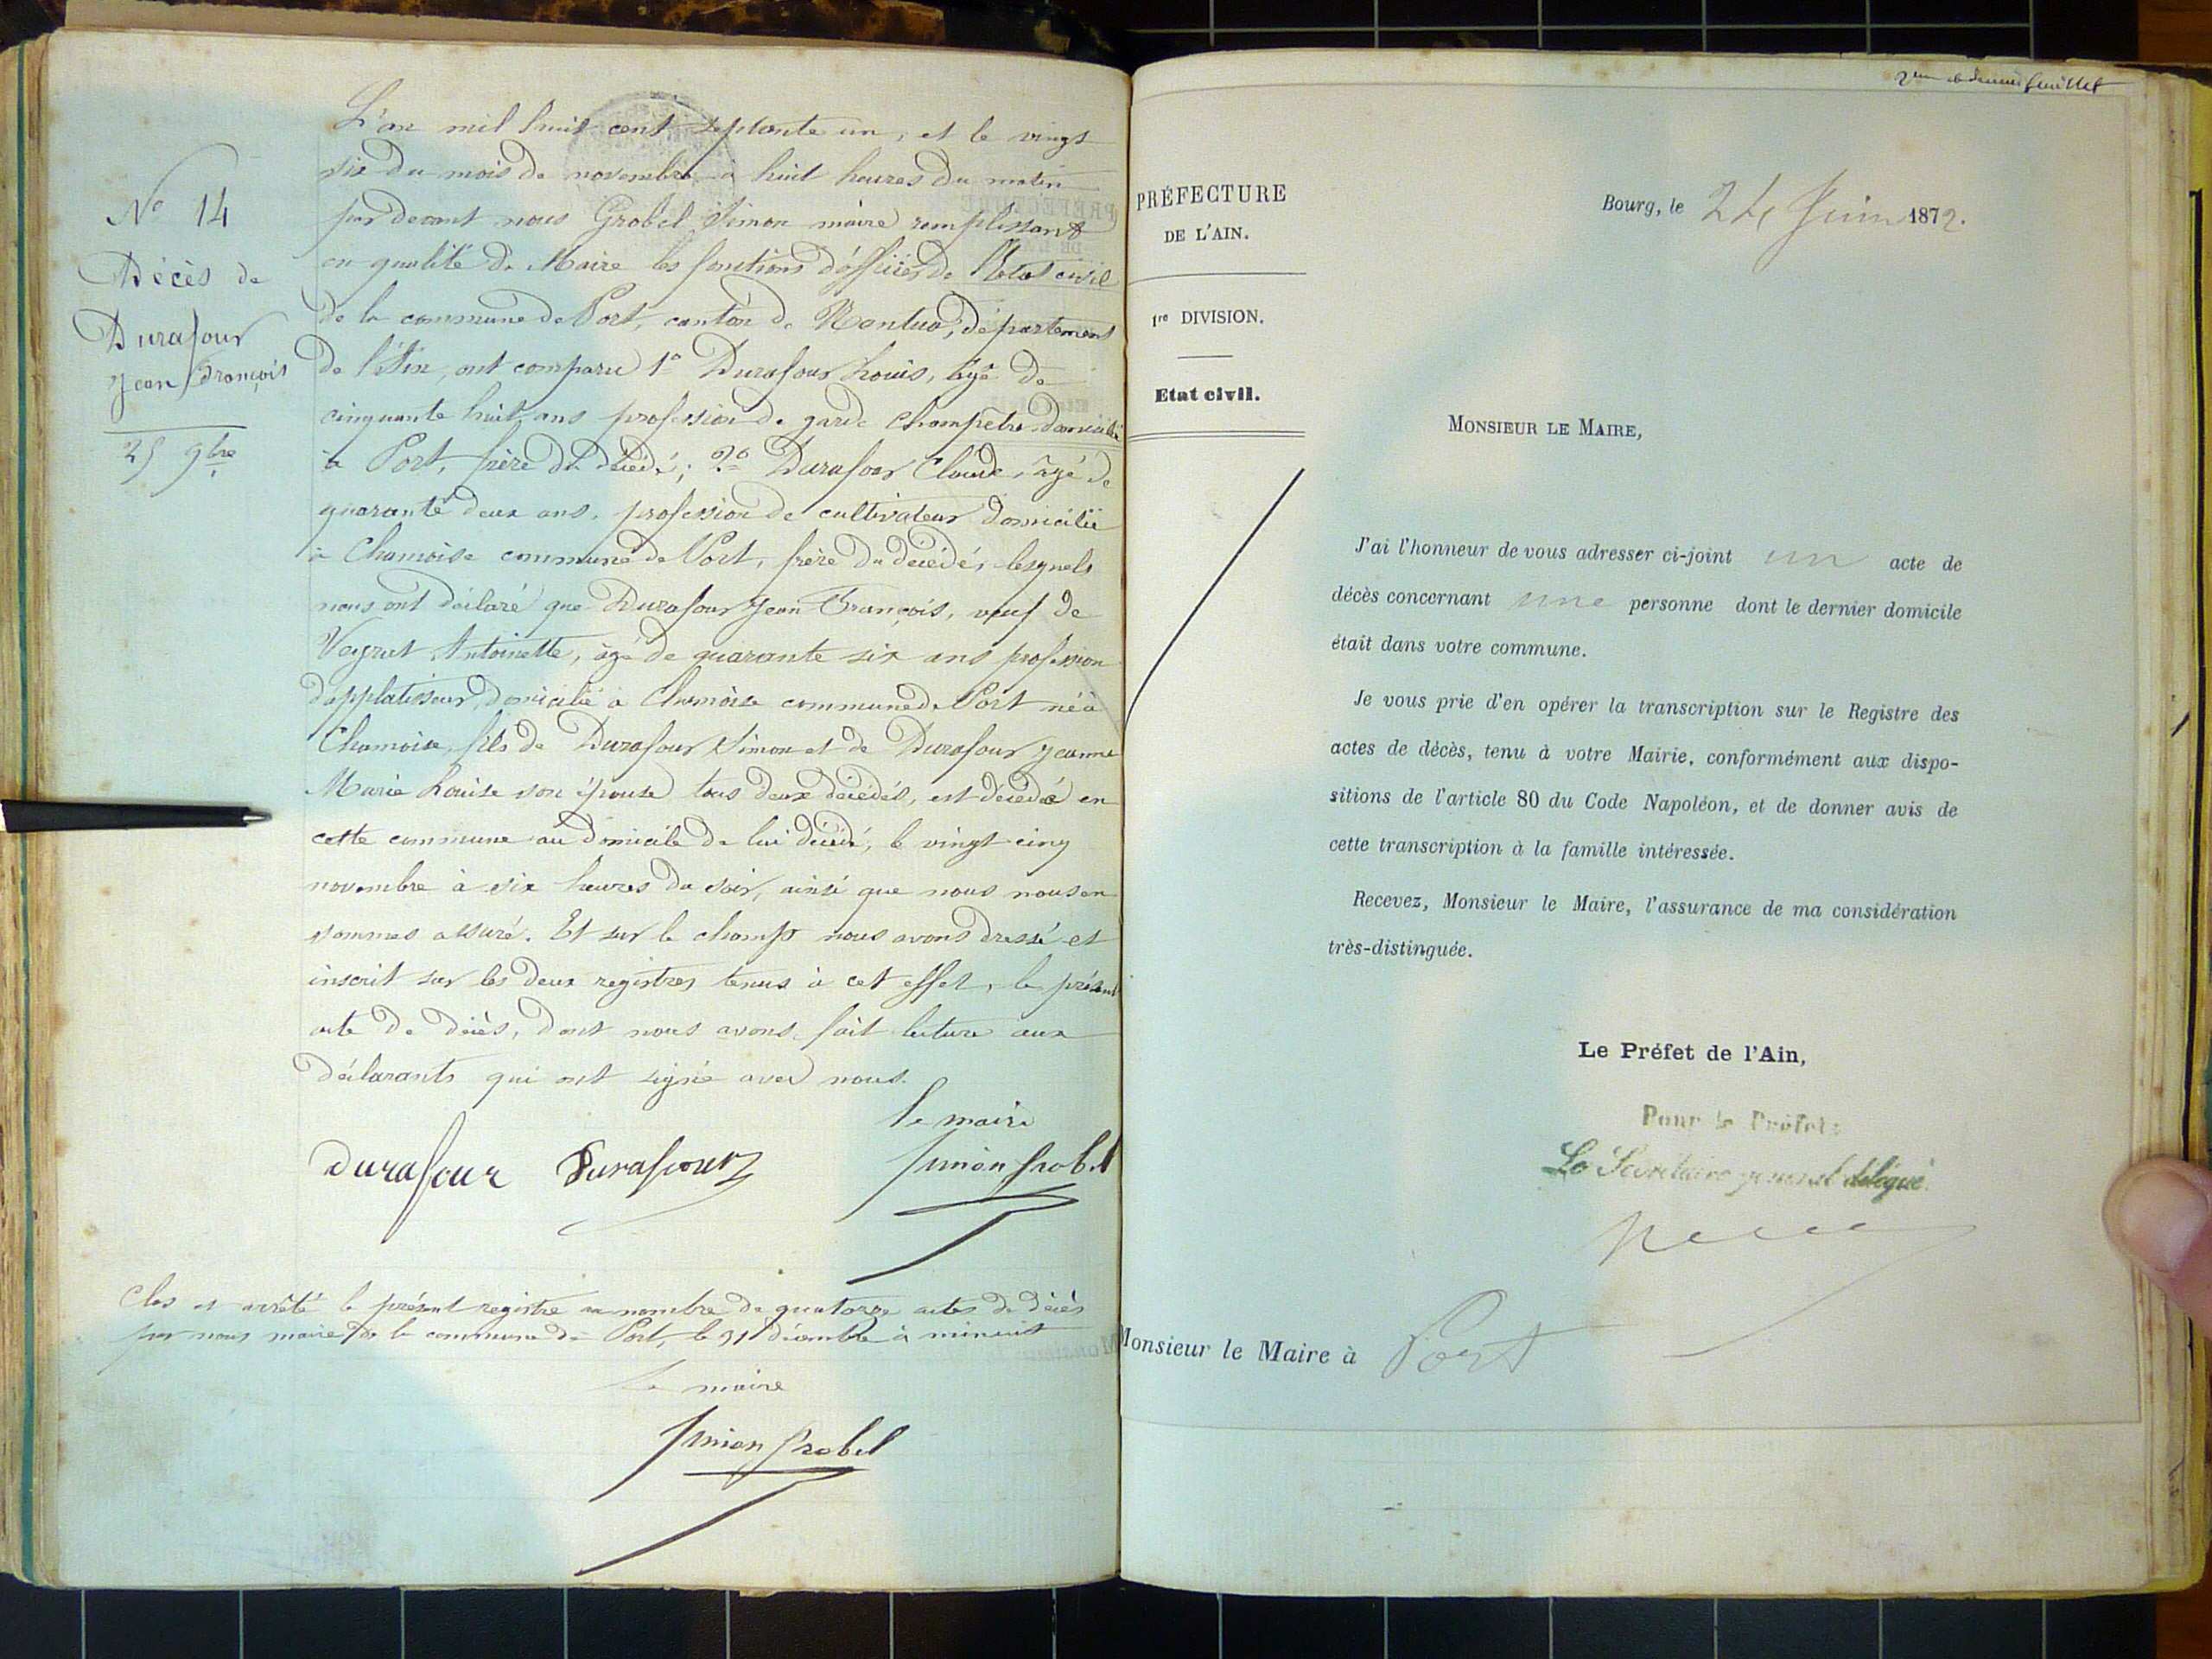 N° 14
Décès de
Durafour
Jean François
25 9bre
L'an mil huit cent septante un, et le vingt
six du mois de novembre à huit heures du matin
par devant nous Grobel Simon maire remplissant
en qualité de Maire les fonctions d'officier de l'Etat civil
de la commune de Port, canton de Nantua, département
de l'Ain, ont comparu 1° Durafour Louis, âgé de
cinquante huit ans profession de garde champêtre domicilié
à Port, frère du décédé; 2° Durafour Claude, âgé de
quarante deux ans, profession de cultivateur domicilié
à Chamoise commune de Port, frère du décédé, lesquels
nous ont déclaré que Durafour Jean François, veuf de
Veyret Antoinette, âgé de quarante six ans profession
d'applatisseur, domicilié à Chamoise commune de Port né à
Chamoise, fils de Durafour Simon et de Durafour Jeanne
Marie Louise son épouse tous deux décédés, est décédé en
cette commune au domicile de lui décédé, le vingt cinq
novembre à six heures du soir, ainsi que nous nous en
sommes assuré. Et sur le champ nous avons dressé et
inscrit sur les deux registres tenus à cet effet, le présent
acte de décès, dont nous avons fait lecture aux
déclarants qui ont signé avec nous.
le maire
Durafour Durafour Simon Grobel
Clos et arrêté le présent registre au nombre de quatorze actes de décès
par nous maire de la commune de Port, le 31 décembre à minuit
Le maire
Simon Grobel
2me et dernier feuillet
PRÉFECTURE
DE L'AIN.
1re DIVISION.
Etat civil.
Bourg, le 24 Juin 1872.
MONSIEUR LE MAIRE,
J'ai l'honneur de vous adresser ci-joint un acte de
décès concernant une personne dont le dernier domicile
était dans votre commune.
Je vous prie d'en opérer la transcription sur le Registre des
actes de décès, tenu à votre Mairie, conformément aux dispo-
sitions de l'article 80 du Code Napoléon, et de donner avis de
cette transcription à la famille intéressée.
Recevez, Monsieur le Maire, l'assurance de ma considération
très-distinguée.
Le Préfet de l'Ain,
Pour le Préfet:
Le Secrétaire général délégué.
Monsieur le Maire à Port